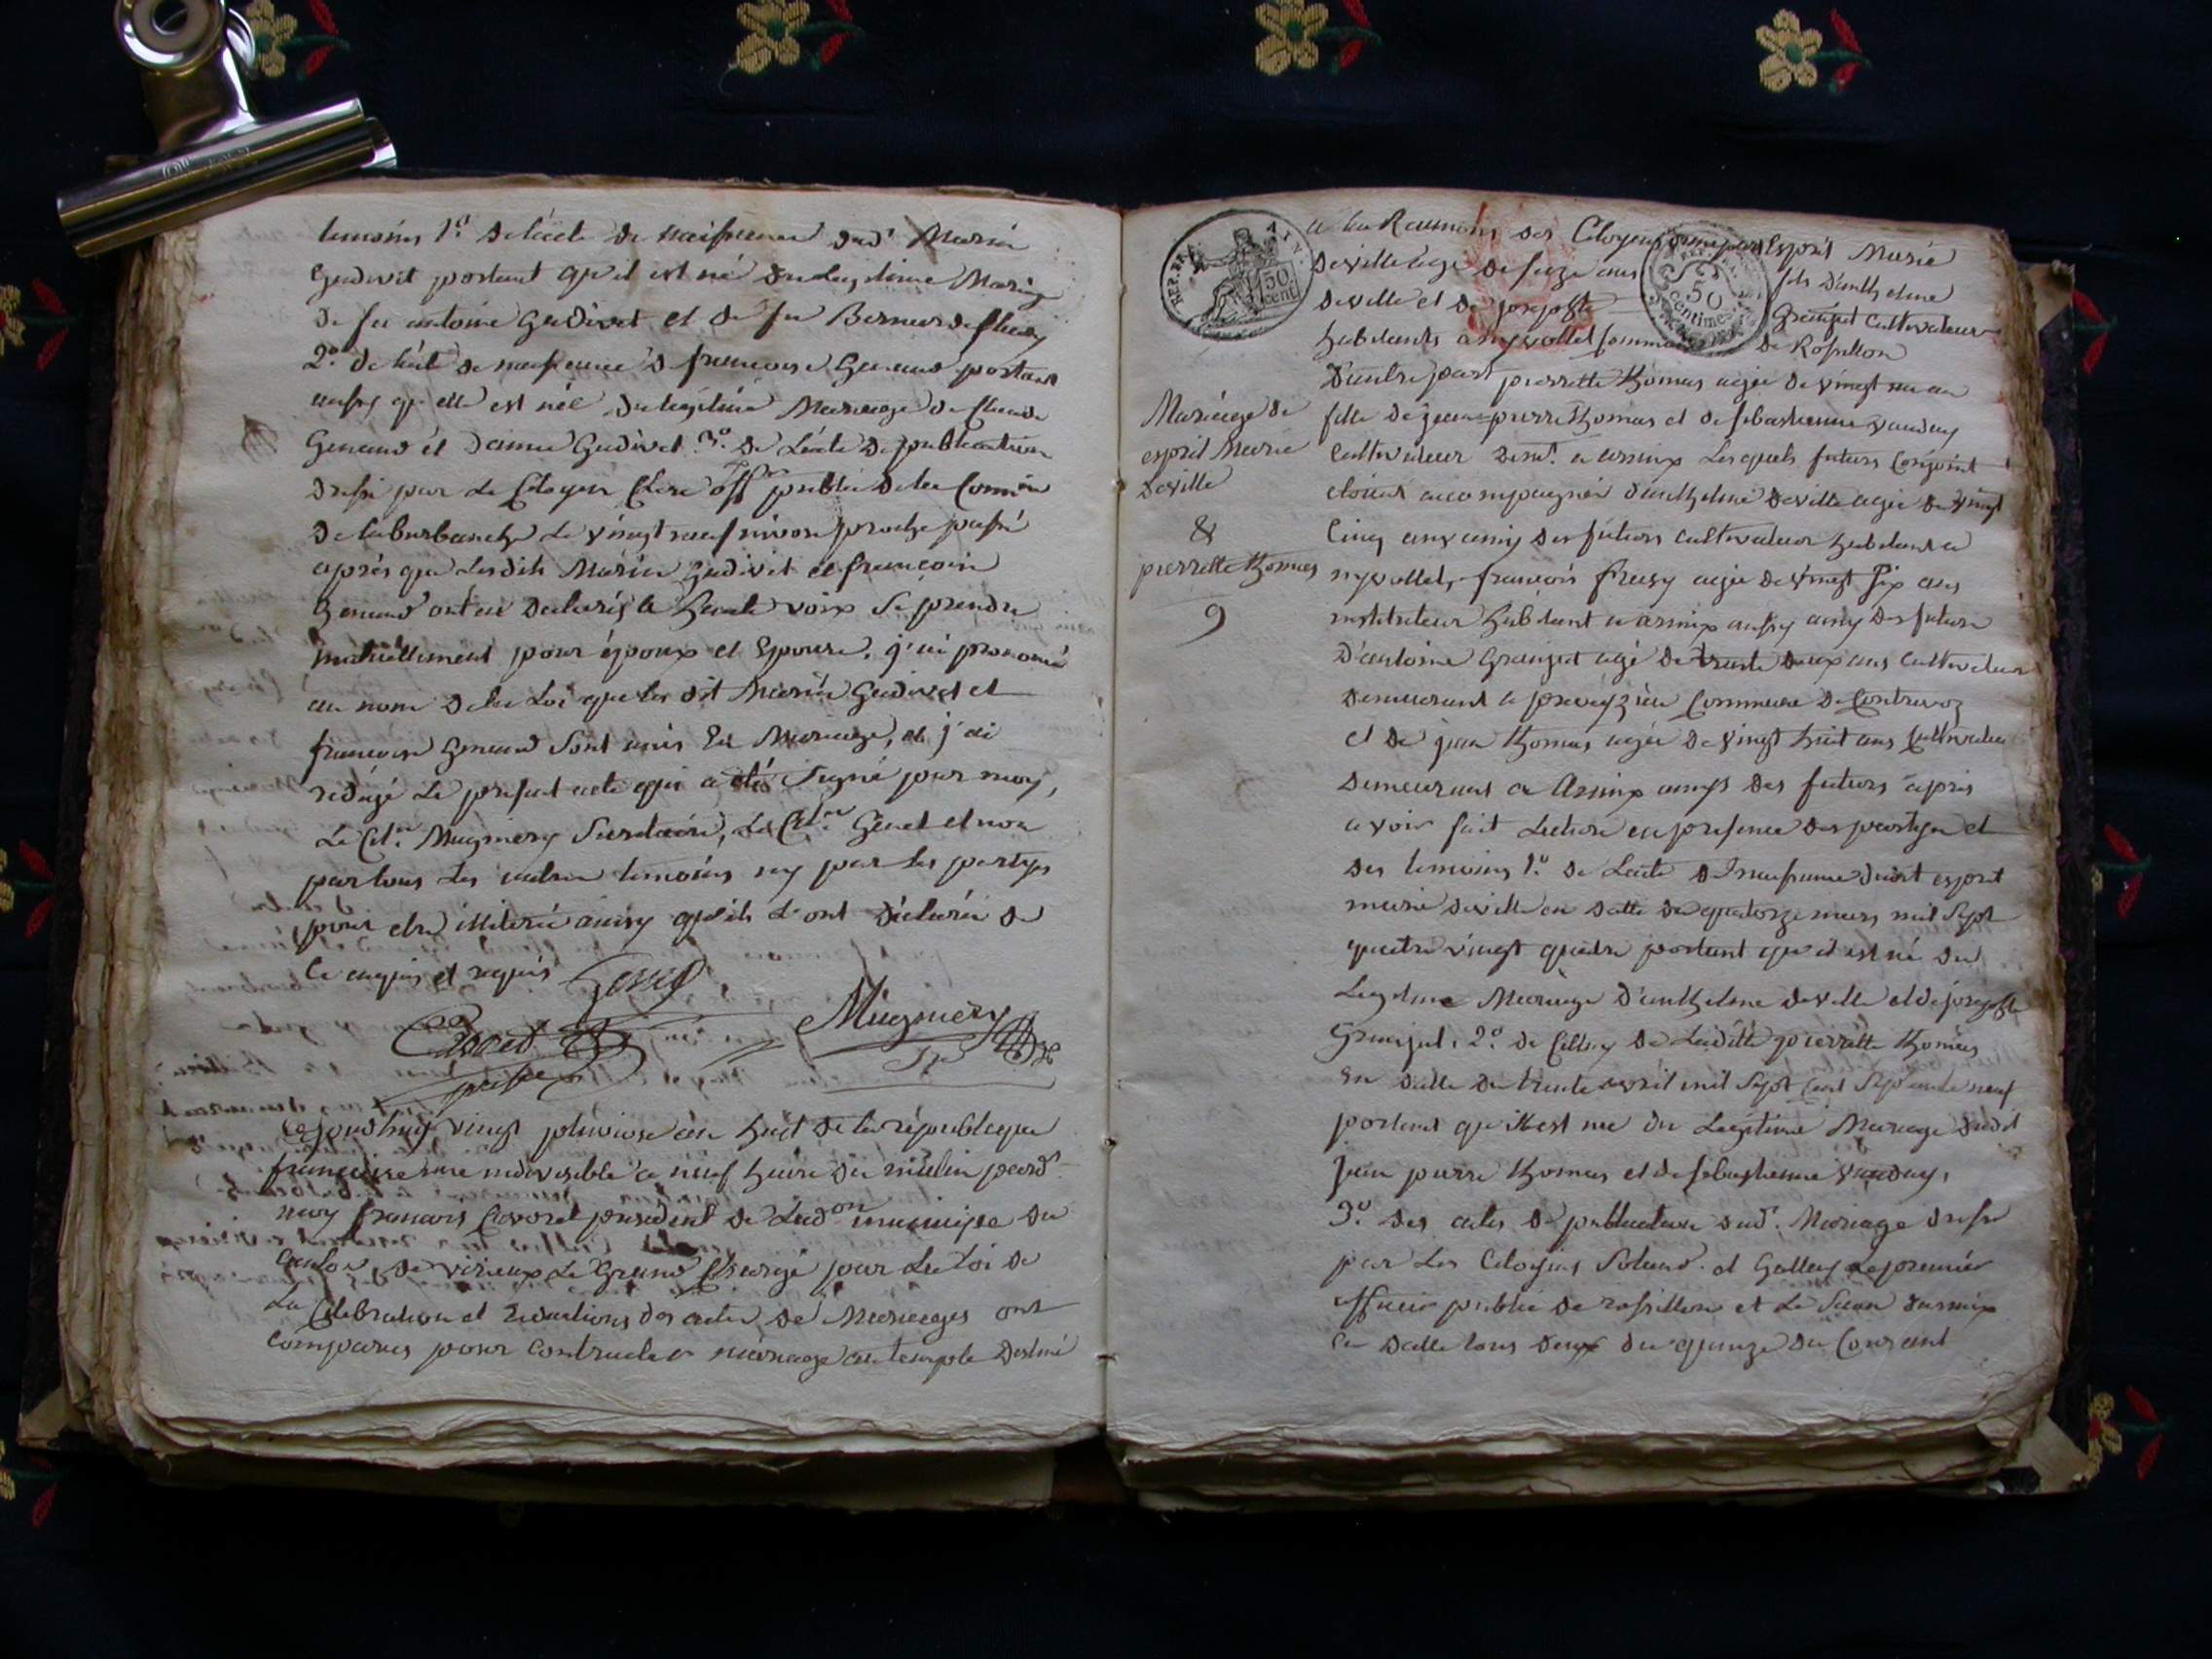 temoins 1º. de lacte de naissance dud. Marin
Gudivit portant qu'il est né du Legitime Mariage
de feu antoine Gudivet et de feu Bernarde fleury
2º. de lacte de naissance d francoise Genaud portant
aussy qu elle est née du legitime Mariage de Claude
Genaud et danne Gudivet 3º. de Lacte de publication
dressé par Le Citoyen Clere off.er public de la Comune
de laburbanche Le vingt neuf nivose proche passé
après que Lesdits Marin Gudivit et francoise
Genaud ont eu declarés a haute voix se prendre
mutuellement pour époux et Epouse, j'ai prononcé
au nom de la Loi que les dit Marin Gudivet et
francoise Genaud sont unis En Mariage, et j'ai
redigé Le present acte qui a été Signé par moy,
Le Cit.n Mugniery Secretaire, Le Cit.n Genet et non
par tous Les autres temoins ny par les partyes
pour etre illiteré ainsy qu'ils L'ont déclarés de
ce enquis et requis
Genet
Mugniery
Cavoret
Cejourdhuy vingt pluviose an huit de la république
francaise une indivisible a neuf heure du matin pard.
moy francois Cavoret president de Lad.on municipe du
Canton de virieux Le Grand Chargé par La Loi de
La Celebration et Redactions des actes de Mariages ont
comparus pour contracter mariage au temple destiné
REP. FRA.
50 cent.
50 centimes
a la Reunions des Citoyens d'une part Esprit Marie
deville age de seize ans fils d'anthelme
deville et de josephte Granjat Cultivateur
habitants a nyvollet Commune de Rossillon
Mariage de
esprit Marie
deville
&
pierrette thomas
9
D'autre part pierrette thomas agée de vingt un an
fille de jean pierre thomas et de sebastienne vauday
Cultivateur dem.t a armix Lesquels futurs Conjoint
etoient accompagnés d'anthelme deville agée de vingt
Cinq ans amy des futurs cultivateur habitant a
nyvollet, francois fleury agée de vingt six ans
instituteur habitant a armix aussy amy des futurs
D'antoine Granjat agé de trente deux ans Cultivateur
demeurant a preveyzieu Commune de Contrevoz
et de jean thomas agée de vingt huit ans Cultivateur
demeurant a Armix amys des futurs après
avoir fait Lecture en presence des partyes et
des temoins 1º. de Lacte de naissance dudit esprit
marie deville en datte du quatorze mars mil Sept
quatre vingt quatre portant que il est né du
Legitime Mariage d'anthelme deville et de josephte
Granjat, 2º. de Celluy de Ladite pierrette thomas
En datte du trente avril mil Sept Cent Septante neuf
portant qu'il est né du Legitime Mariage dudit
jean pierre thomas et de sebastienne vauday,
3º. des actes de publication dud. Mariage dressé
par Les Citoyens et Le premier
officier public de rossillon et Le Secon d'armix
en datte tous deux du quinze du Courant